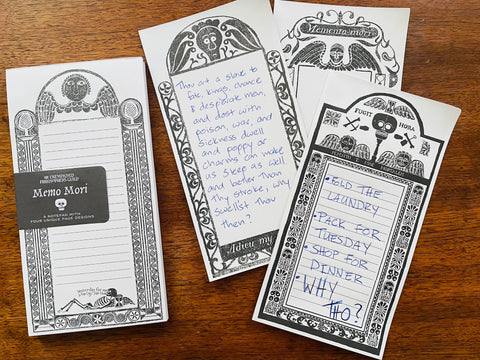 THE UNEMPLOYED
PHILOSOPHERS GUILD
Memo Mori
A NOTEPAD WITH
FOUR UNIQUE PAGE DESIGNS
Yesterday for me
Thou art a slave to
fate, kings, chance
& desperate men,
and dost with
poison, war, and
sickness dwell
and poppy or
charms can make
us sleep as well
and better than
Thy stroke; why
swellst thou
then?
Adieu my
Memento mori
FUGIT HORA
• FOLD THE
LAUNDRY
• PACK FOR
TUESDAY
• SHOP FOR
DINNER
• WHY
THO?